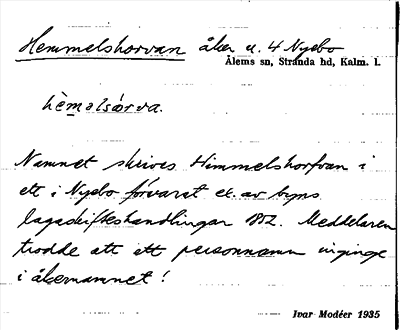 Hemmelshorvan åker u. 4 Nyebo
Ålems sn, Stranda hd, Kalm. l.
hèmalsårva.
Namnet skrives Himmelshorfvan i
ett i Nyebo förvarat ex. av byns
lagaskifteshandlingar 1852. Meddelaren
trodde att ett personnamn inginge
i åkernamnet!
Ivar Modéer 1935